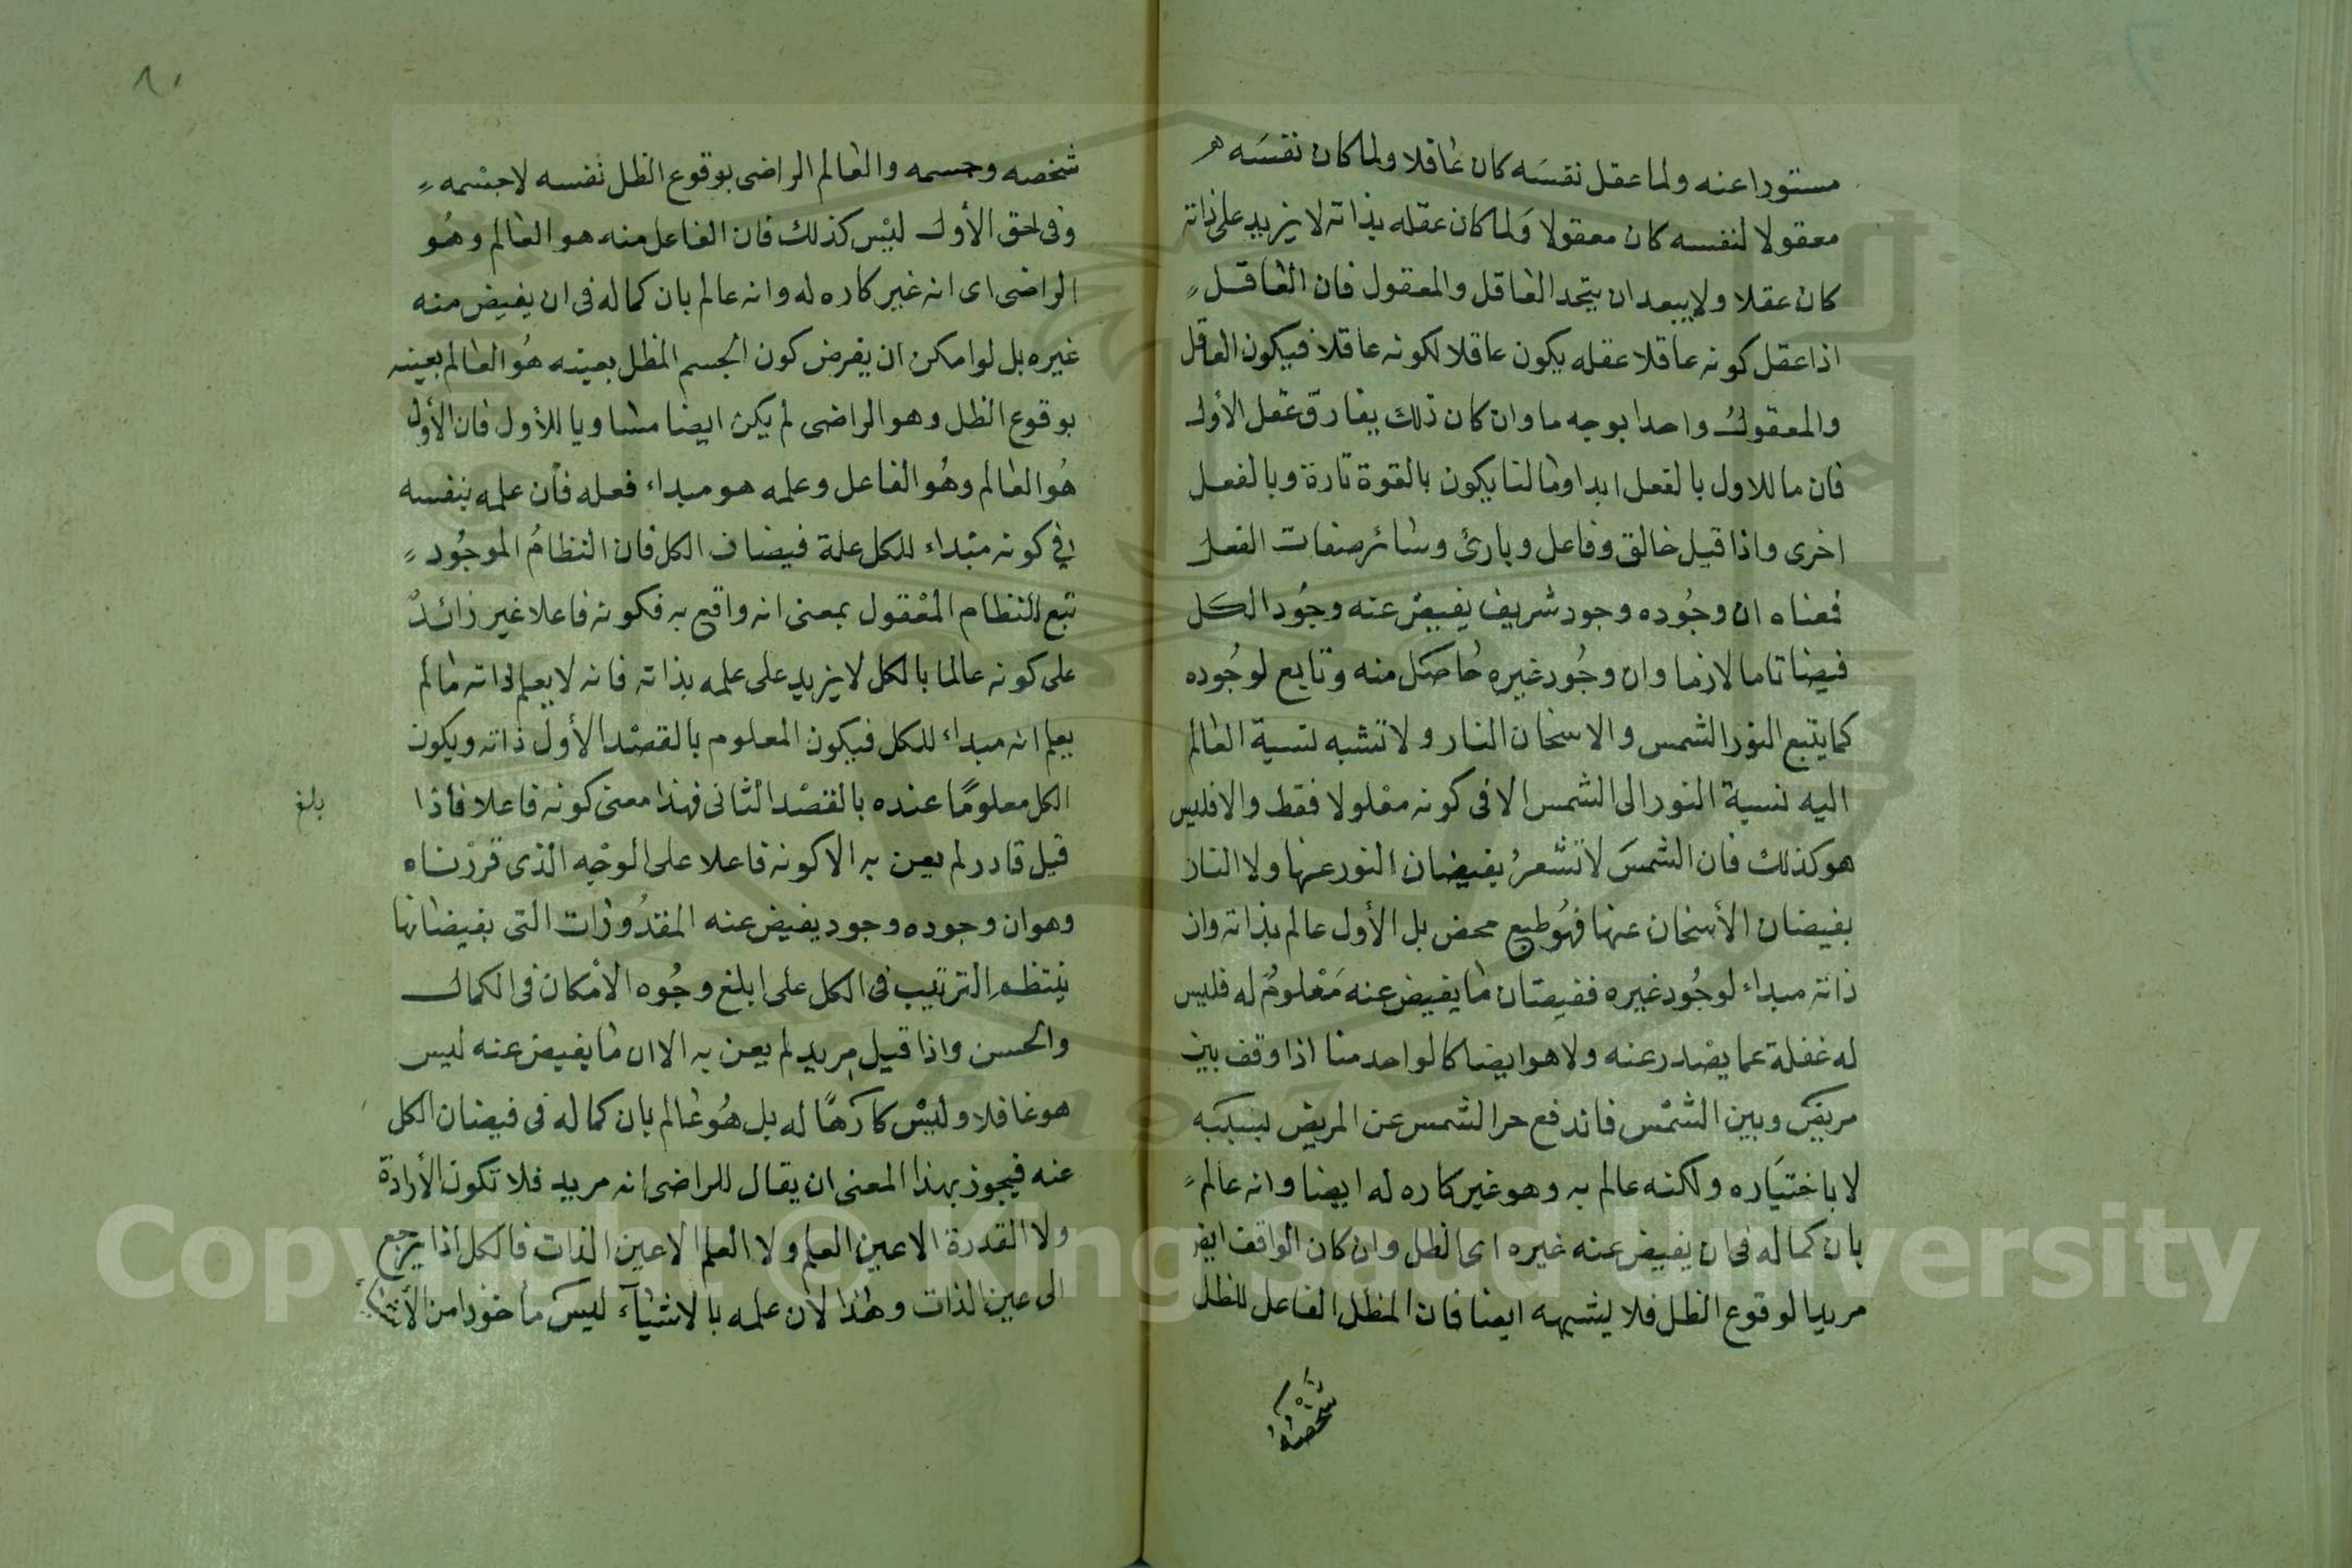 مستورا عنه ولما عقل نفسَه كان عاقلا ولما كان نفسَه
معقولا لنفسه كان معقولا ولما كان عقله بذاته لا يزيد على ذاته
كان عقلا ولا يبعد ان يتحد العاقل والمعقول فان العاقل
اذا عقل كونه عاقلا عقله يكون عاقلا لكونه عاقلا فيكون العاقل
والمعقول واحدا بوجه ما وان كان ذلك يفارق عقل الأول
فان ما للاول بالفعل ابدا وما لنا يكون بالقوة تارة وبالفعل
اخرى واذا قيل خالق وفاعل وبارئ وسائر صفات الفعل
فمعناه ان وجُوده وجود شريف يفيض عنه وجُود الكل
فيضا تاما لازما وان وجُود غيره حاصل منه وتابع لوجُوده
كما يتبع النور الشمس والاسخان النار ولا تشبه نسبة العالم
اليه نسبة النور الى الشمس الا فى كونه معْلولا فقط والا فليس
هو كذلك فان الشمسَ لا تشعرُ بفيضان النور عنها ولا النار
بفيضان الأسخان عنها فهُو طبع محض بل الأول عالم بذاته وان
ذاته مبداء لوجُود غيره ففيضان ما يفيض عنه مَعْلومٌ له فليس
له غفلة عما يصْدر عنه ولا هو ايضا كالواحد منا اذا وقف بين
مريض وبين الشمْس فاندفع حر الشمس عن المريض بسببَه
لا باختيَاره ولكنه عالم به وهو غير كاره له ايضا وانه عالم
بان كماله فى ان يفيض عنه غيره اى الظل وان كان الواقف ايض
مريدا لوقوع الظل فلا يشبهه ايضا فان المظل الفاعل للظل
شخصه
٨٠
شخصه وجسمه والعالم الراضى بوقوع الظل نفسه لا جسْمه
وفى حق الأول ليْس كذلك فان الفاعل منه هو العالم وهُو
الراضى اى انه غير كاره له وانه عالم بان كماله فى ان يفيض منه
غيره بل لو امكن ان يفرض كون الجسم المظل بعينه هُو العالم بعينه
بوقوع الظل وهو الراضى لم يكن ايضا مساويا للأول فان الأول
هُو العالم وهُو الفاعل وعلمه هو مبداء فعله فان علمه بنفسه
فى كونه مبْداء للكل علة فيضان الكل فان النظامُ الموجُود
تبع للنظام المعْقول بمعنى انه واقع به فكونه فاعلا غير زائد
على كونه عالما بالكل لا يزيد على علمه بذاته فانه لا يعلم ذاته ما لم
يعلم انه مبداء للكل فيكون المعلوم بالقصْد الأول ذاته ويكون
الكل معلومًا عنده بالقصْد الثانى فهذا معنى كونه فاعلا فاذا
بلغ
قيل قادر لم يعن به الا كونه فاعلا على الوجْه الذى قررْناه
وهو ان وجوده وجود يفيض عنه المقدُورات التى بفيضانها
ينتظم الترتيب فى الكل على ابلغ وجُوه الامْكان فى الكمال
والحسن واذا قيل مريد لم يعن به الا ان ما يفيض عنه ليس
هو غافلا وليْس كارهًا له بل هُو عالم بان كماله فى فيضان الكل
عنه فيجوز بهذا المعنى ان يقال للراضى انه مريد فلا تكون الأرادة
ولا القدرة الا عين العلم ولا العلم الا عين الذات فالكل اذا يرجع
الى عين الذات وهذا لان علمه بالاشياء ليسَ مأخوذا من الأشياء